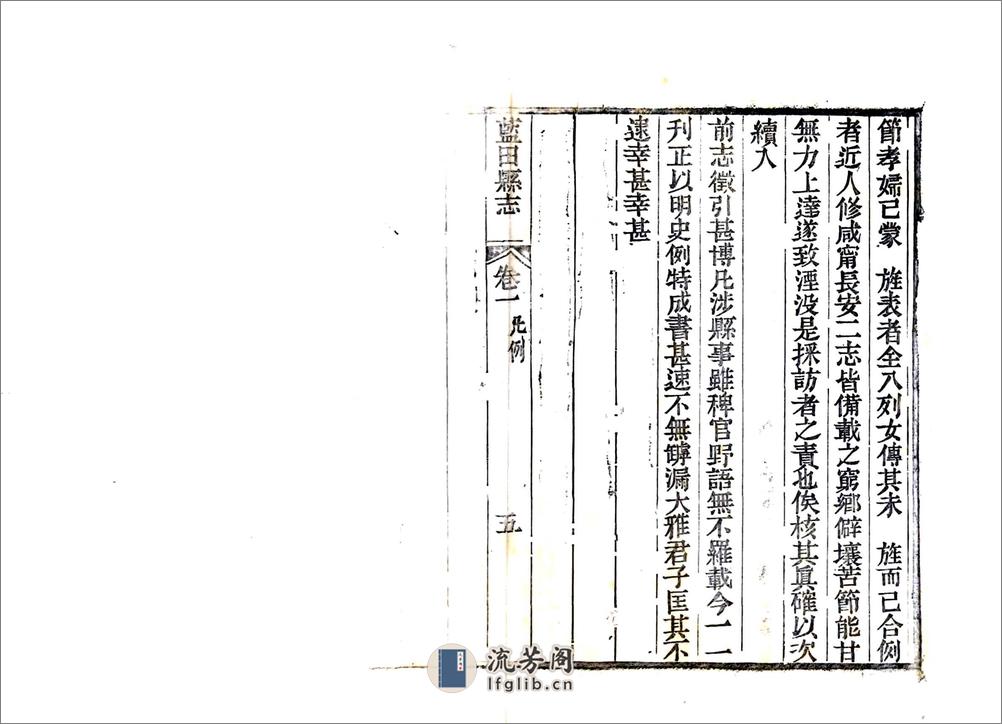 節孝婦已蒙　旌表者全入列女傳其未　旌而已合例
者近人修咸甯長安二志皆備載之窮鄉僻壤苦節能甘
無力上達遂致湮没是採訪者之責也俟核其眞確以次
續入
前志徵引甚博凡涉縣事雖稗官野語無不羅載今一一
刊正以明史例特成書甚速不無罅漏大雅君子匡其不
逮幸甚幸甚
藍田縣志
卷一 凡例
五
流芳阁
lfglib.cn